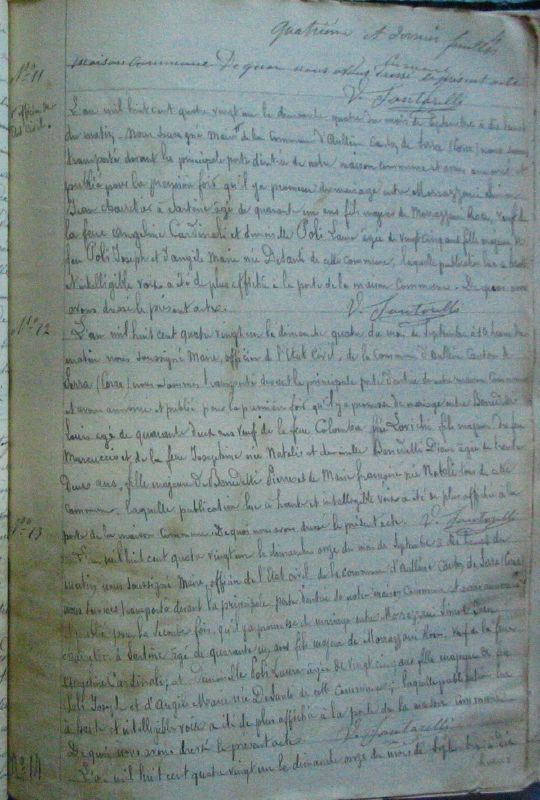 Quatrième et dernier feuillet
maison commune De quoi nous avons dressé le présent acte
V. Santarelli
N° 11
L'an mil huit cent quatre vingt un le dimanche quatre du mois de Septembre à dix heures
du matin. Nous soussigné Maire de la Commune d'Aullène Canton de Serra (Corse) nous sommes
transporté devant la principale porte d'entrée de notre maison commune et avons annoncé et
publié pour la première fois qu'il y a promesse de mariage entre Morazzani
Jean à Sartène âgé de quarante un ans fils majeur de Morazzani veuf de
la feue Angeline Cardinali et demoiselle Poli Laure âgée de vingt cinq ans fille majeure de
feu Poli Joseph et d'Angèle Marie née De Santi de cette commune, laquelle publication lue à haute
et intelligible voix a été de plus affichée à la porte de la maison Commune. De quoi nous
avons dressé le présent acte. V. Santarelli
N° 12
L'an mil huit cent quatre vingt un le dimanche quatre du mois de Septembre à 10 heures du
matin nous soussigné Maire, officier de l'Etat Civil, de la Commune d'Aullène Canton de
Serra (Corse) nous sommes transporté devant la principale porte d'entrée de notre maison Commune
et avons annoncé et publié pour la première fois qu'il y a promesse de mariage entre Benedetti
Louis âgé de quarante deux ans veuf de la feue Colomba fils majeur de feu
et de la feue Josephine née Natali et demoiselle Benedetti âgée de trente
deux ans, fille majeure de Benedetti Pierre et de Marie françoise née Natali tous de cette
commune, laquelle publication lue à haute et intelligible voix a été de plus affichée à la
porte de la maison Commune. De quoi nous avons dressé le présent acte. V. Santarelli
N° 13
L'an mil huit cent quatre vingt un le dimanche onze du mois de Septembre à dix heures du
matin, nous soussigné Maire, officier de l'Etat civil de la commune d'Aullène Canton de Serra (Corse)
nous sommes transporté devant la principale porte d'entrée de notre maison Commune et avons annoncé
et publié pour la seconde fois, qu'il y a promesse de mariage entre Morazzani Jean
à Sartène âgé de quarante un ans fils majeur de Morazzani veuf de la feue
Angeline Cardinali; et demoiselle Poli Laure âgée de vingt cinq ans fille majeure de feu
Poli Joseph et d'Angèle Marie née De Santi de cette Commune; laquelle publication lue
à haute et intelligible voix a été de plus affichée à la porte de la maison commune.
De quoi nous avons dressé le présent acte V. Santarelli
N° 14
L'an mil huit cent quatre vingt un le dimanche onze du mois de Septembre à dix
heures